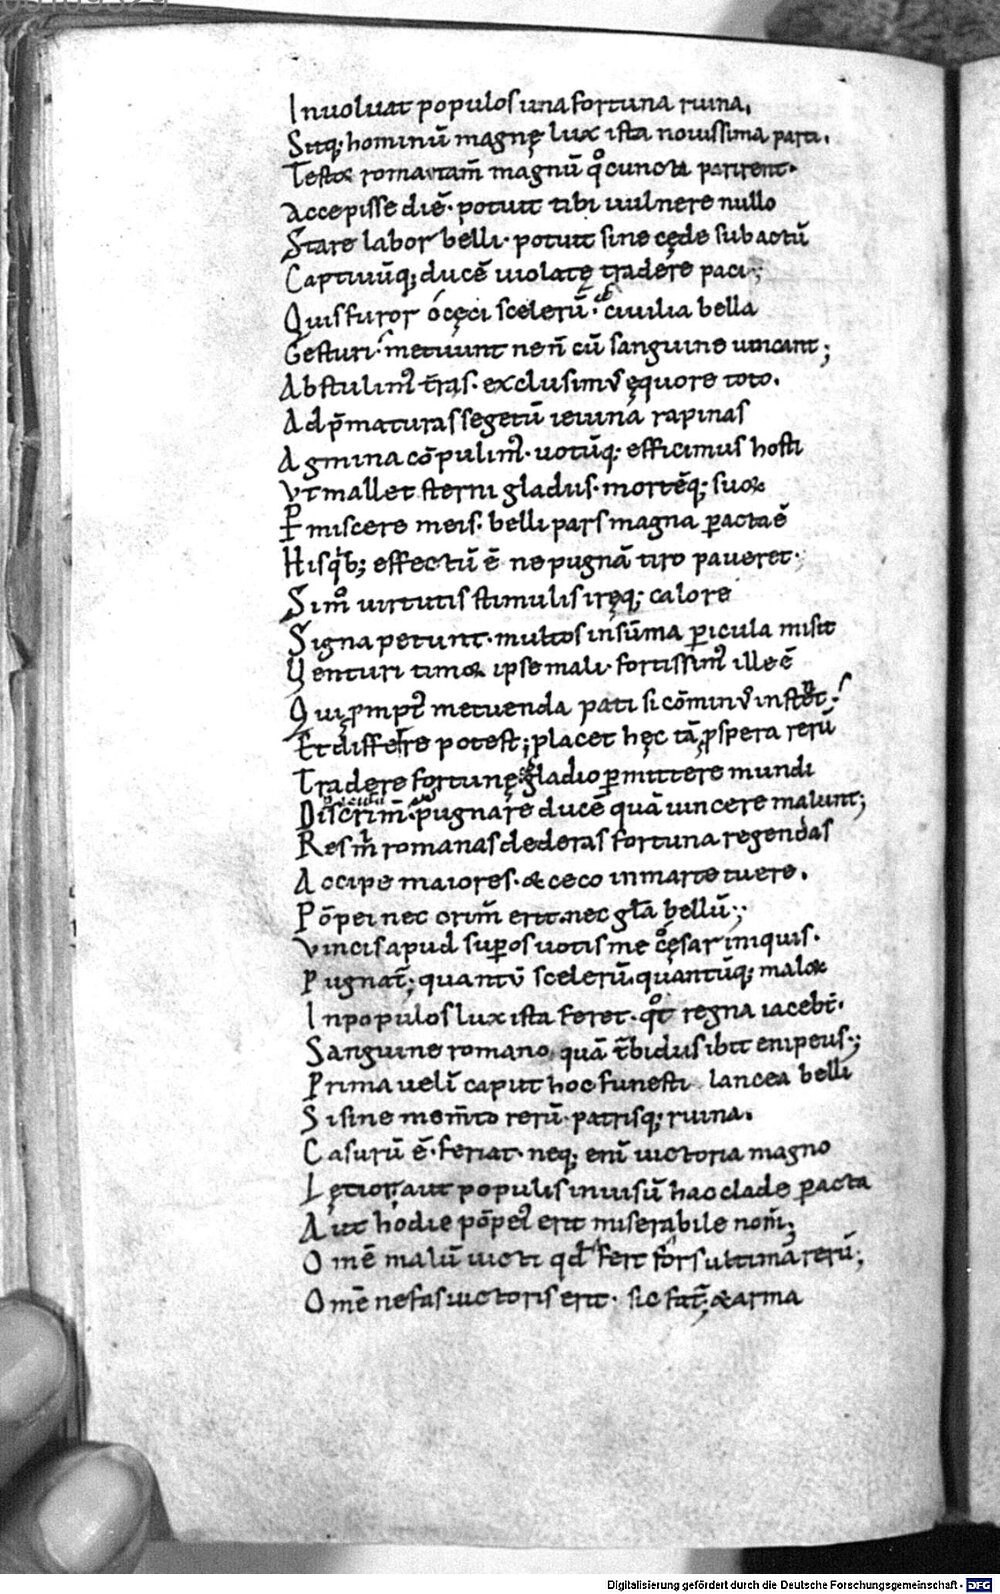 Inuoluat populos una fortuna ruina.
Sitq; hominū magnę lux ista nouissima parti.
Testor roma tam̄ magnū qͦ cuncta perirent.
Accepisse diē. potuit tibi uulnere nullo
Stare labor belli. potuit sine cęde subactū
Captiuūq; ducē uiolatę tradere paci;
Quis furor ó cęci scelerū. ciuilia bella
Gesturi. metuunt ne ñ cū sanguine uincant;
Abstulim᷒ t̄ras. exclusim᷒ ęquore toto.
Ad p̄maturas segetū ieiuna rapinas
Agmina cōpulim᷒. uotūq; efficimus hosti
Vt mallet sterni gladiis. mortēq; suorꝝ
Pmiscere meis. belli pars magna ꝑacta ē
Hisq̇b; effectū ē ne pugnā tiro paueret.
Si mͦ uirtutis stimulis iręq; calore
Signa petunt. multos in sūma ꝑicula misit
Venturi timor ipse mali. fortissim᷒ ille ē
Qui ꝓmpt᷒ metuenda pati si cōmin᷒ instent.
Et differre potest; placet hęc tā ꝓspera rerū
Tradere fortunę. gladio ꝑmittere mundi
Discrim̄. pugnare ducē quā uincere malunt;
Res m̄ romanas dederas fortuna regendas
Accipe maiores. & ceco in marte tuere.
Pōpei nec crim̄ erit. nec gl̄a bellū;
Vincis apud suꝑos uotis me cęsar iniquis.
Pugnat̄; quantū scelerū. quantūq; malorꝝ
In populos lux ista feret. qͦt regna iacebt̄.
Sanguine romano quā t̄bidus ibit enipeus;
Prima uelī caput hoc funesti lancea belli
Si sine mom̄to rerū. patrisq; ruina.
Casurū ē. feriat. neq; enī uictoria magno
Lętior. aut populis inuisū hac clade ꝑacta
Aut hodie pōpei᷒ erit miserabile nom̄;
Om̄e malū uicti qđ fert fors ultima rerū;
Om̄e nefas uictoris erit. sic fat̄; & arma
Digitalisierung gefördert durch die Deutsche Forschungsgemeinschaft - DFG